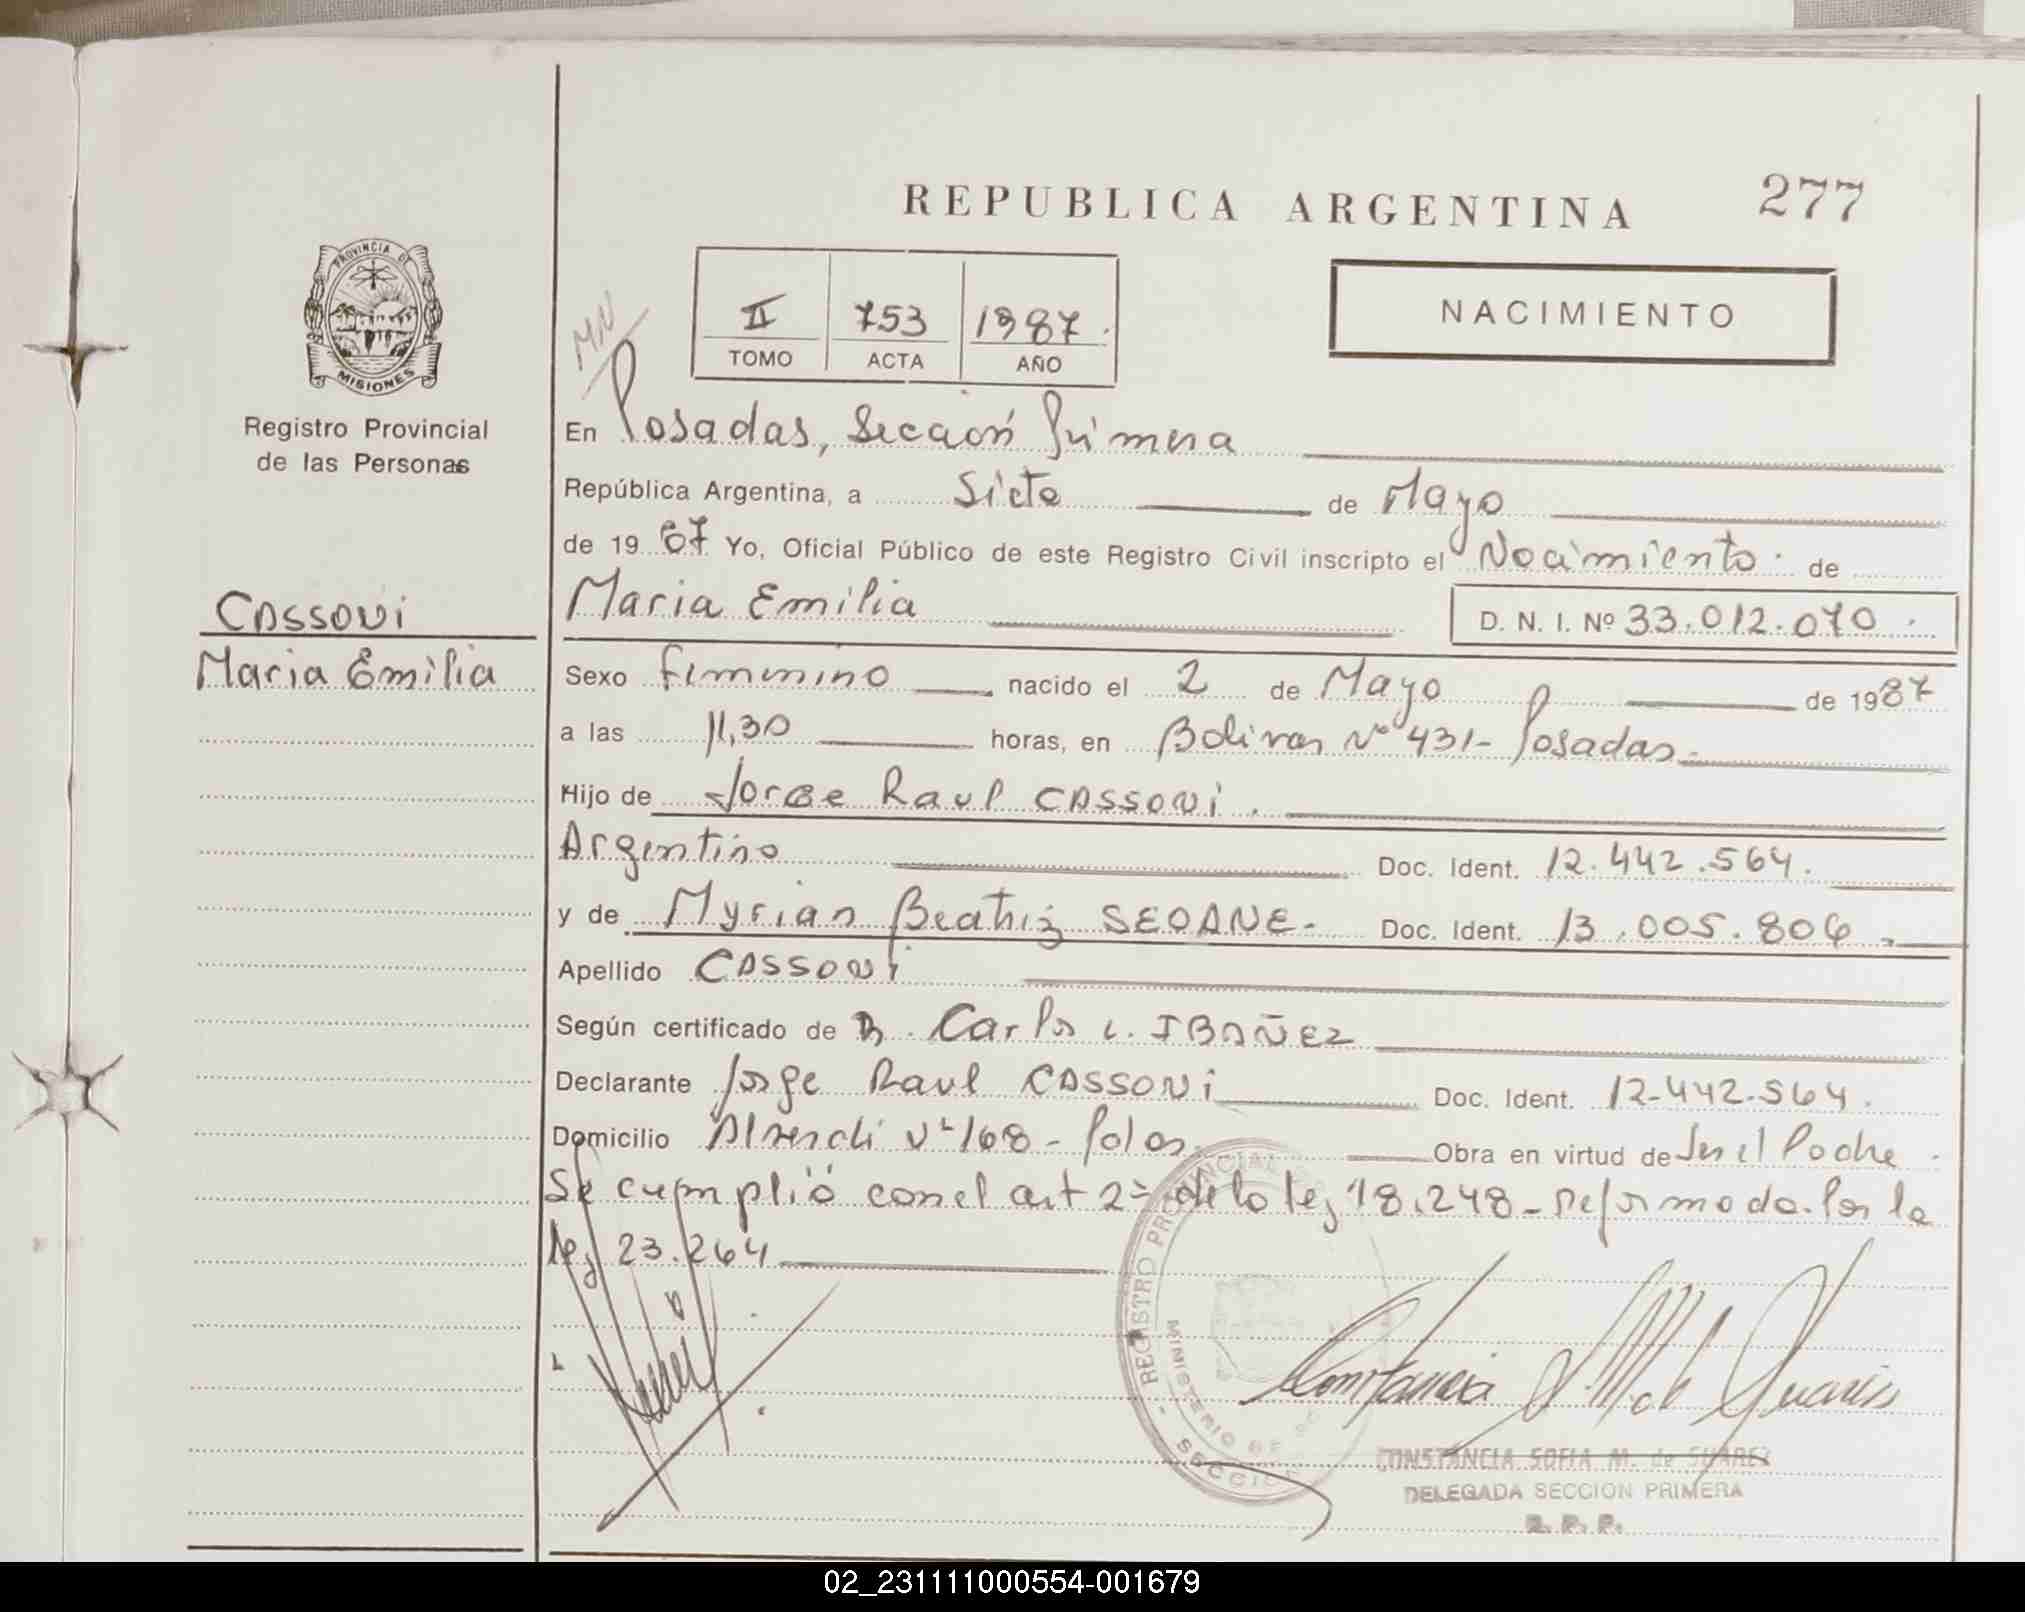 REPUBLICA ARGENTINA 277
PROVINCIA DE
MISIONES
Registro Provincial
de las Personas
MN
II 753 1987.
TOMO ACTA AÑO
NACIMIENTO
En Posadas, Sección Primera
República Argentina, a Siete de Mayo
de 19 87 Yo, Oficial Público de este Registro Civil inscripto el Nacimiento de
CASSONI
Maria Emilia
Maria Emilia D. N. I. Nº 33.012.070
Sexo Femenino nacido el 2 de Mayo de 1987
a las 11,30 horas, en Bolivar Nº 431- Posadas-
Hijo de Jorge Raul CASSONI.
Argentino Doc. Ident. 12.442.564.
y de Myrian Beatriz SEOANE- Doc. Ident. 13.005.806
Apellido CASSONI
Según certificado de D. Carlos L. IBAÑEZ
Declarante Jorge Raul CASSONI Doc. Ident. 12-442.564.
Domicilio Nº 168 - Obra en virtud de Ser el Padre
Se cumplió con el art 2º de la ley 18.248- reformada por la
ley 23.264
REGISTRO PROVINCIAL
MINISTERIO DE
SECCION
Constancia S. M. de Suarez
CONSTANCIA SOFIA M. de SUAREZ
DELEGADA SECCION PRIMERA
R. P. P.
02_231111000554-001679